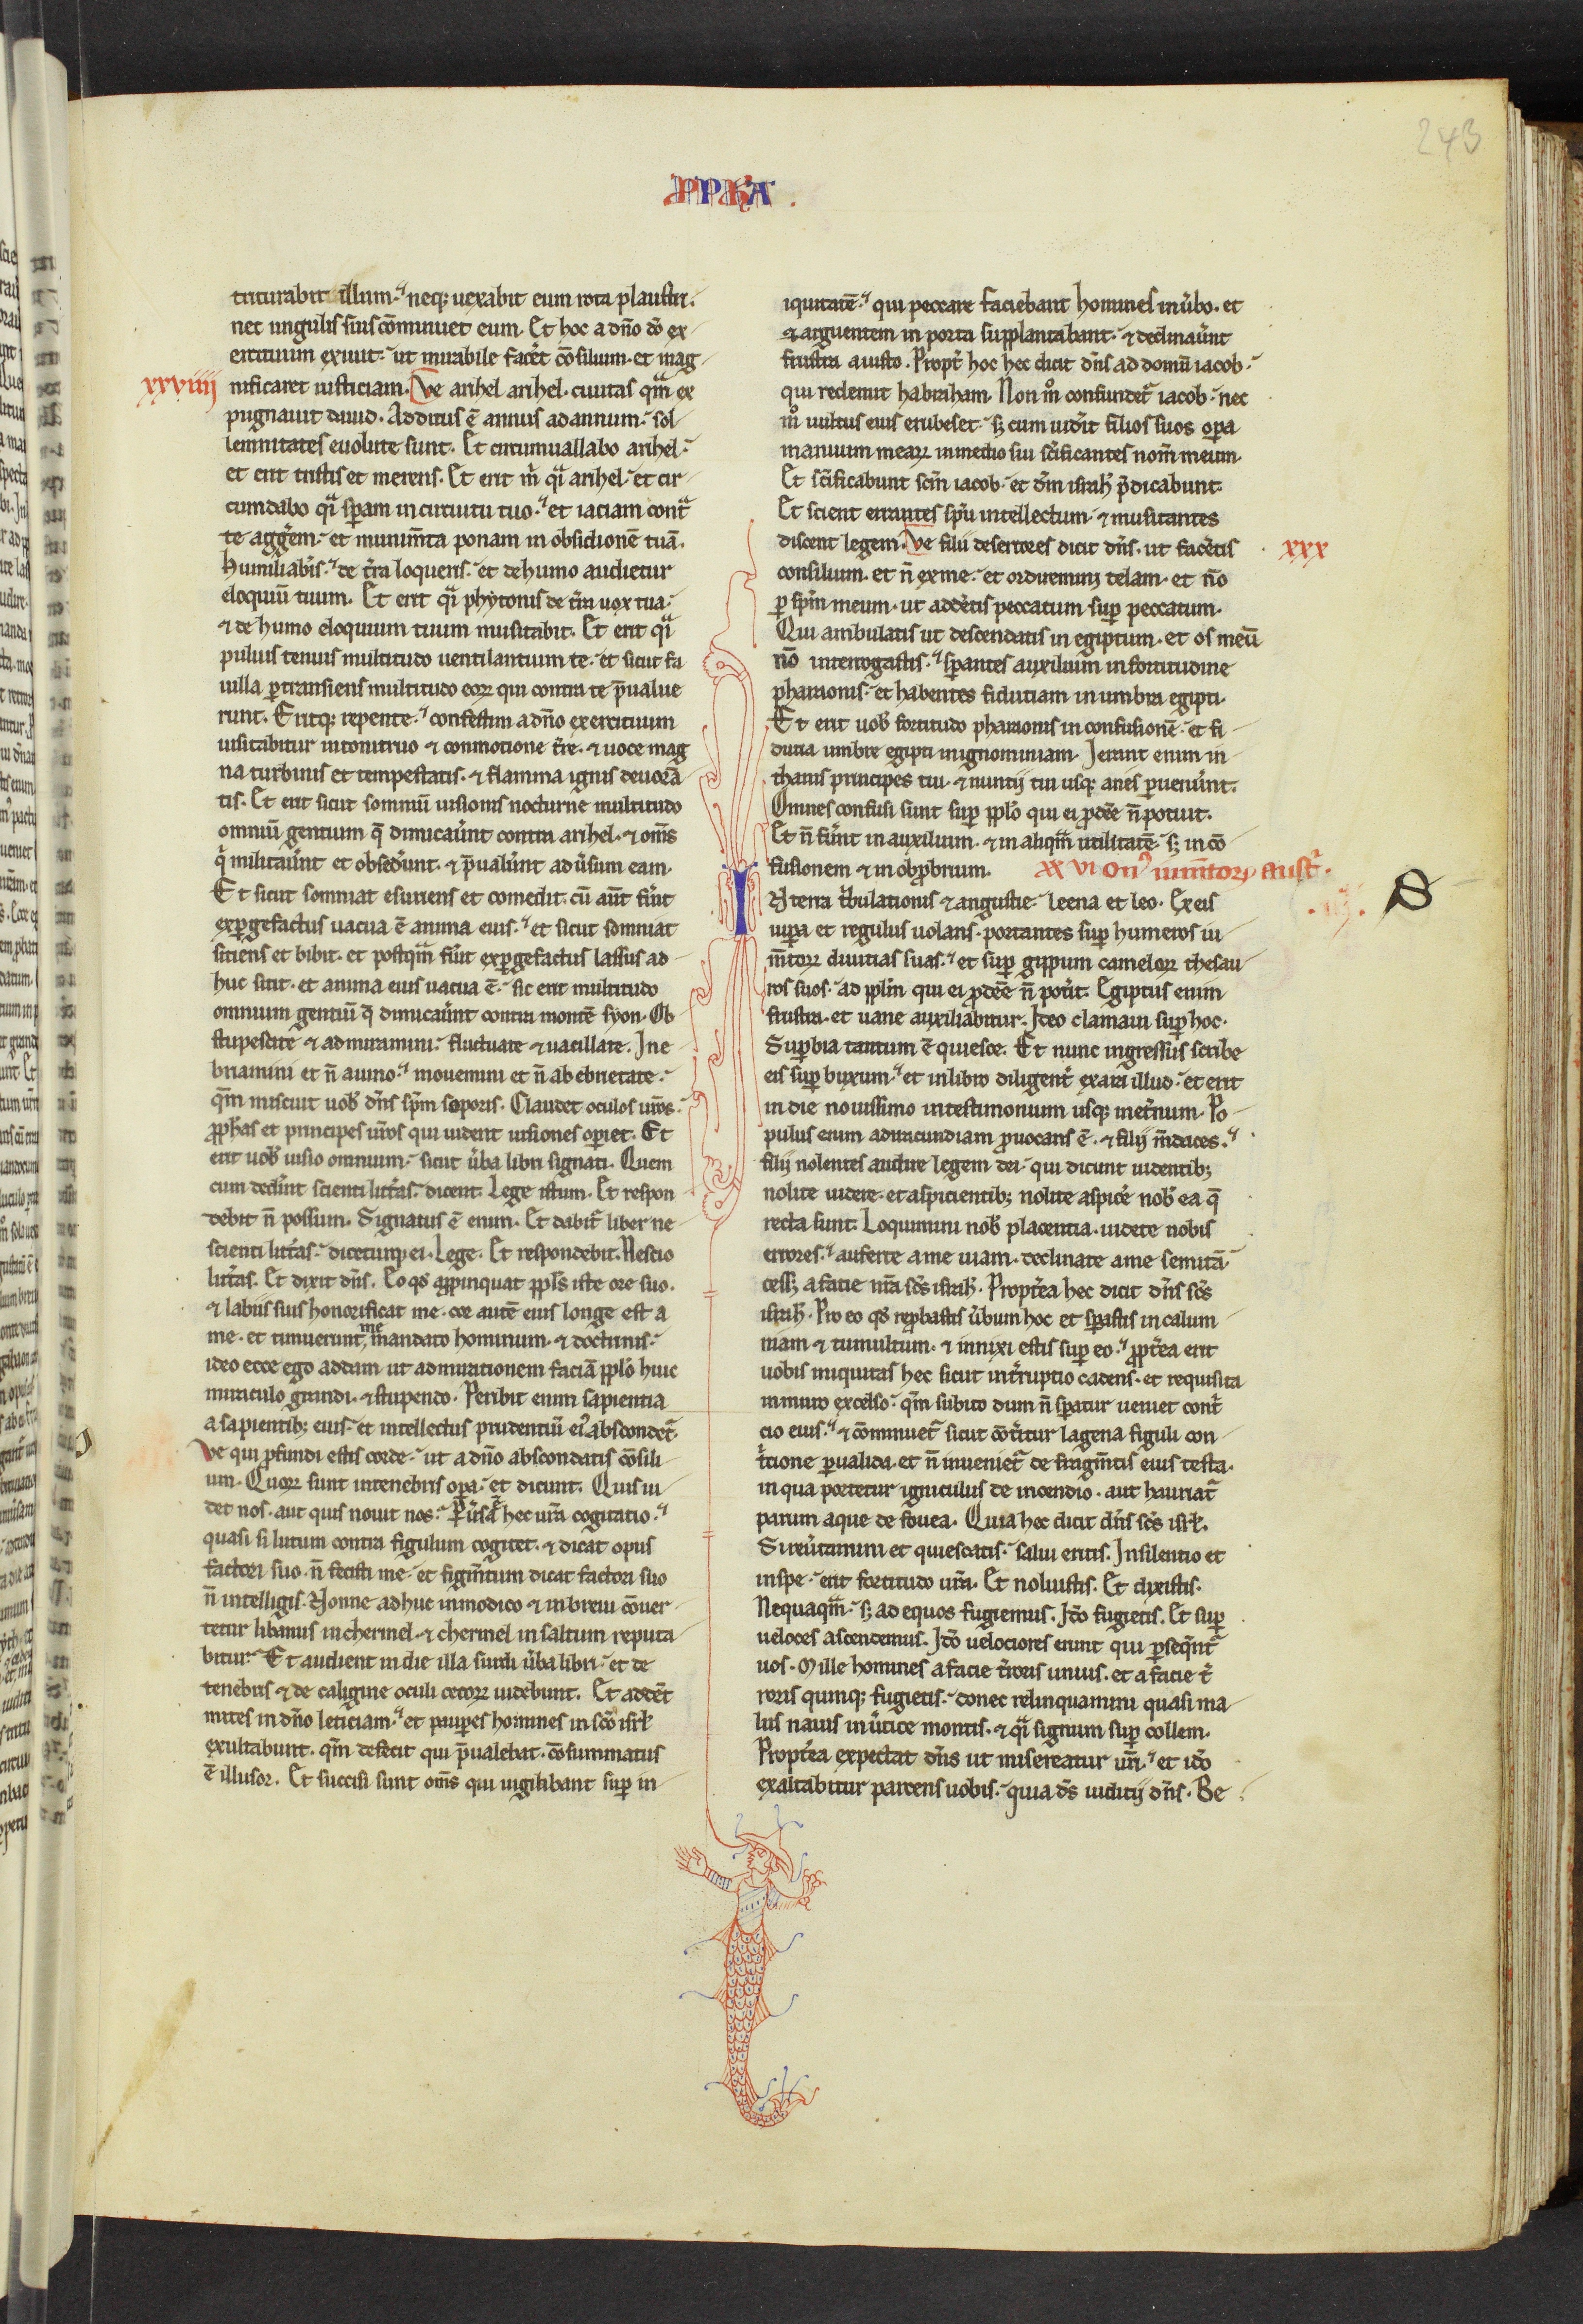 243
triturabit illum. neq; uexabit eum rota plaustri.
nec ungulis suis cōminuet eum. Et hoc a dn̄o dō ex
ercituum exiuit. ut mirabile facet cōsilium. et mag
xxviiii
nificaret iusticiam. Ve arihel arihel. ciuitas qm̄ ex
pugnauit dauid. Additus ē annus ad annum. sol
lemnitates euolute sunt. Et circumuallabo arihel.
et erit tristis et merens. Et erit m̄ qi arihel. et cir
cumdabo qi speram in circuitu tuo. et iaciam cont
te aggem. et munim̄ta ponam in obsidionē tuā.
humiliabis. de tra loquens. et de humo audietur
eloquiū tuum. Et erit qi phytonis de tra uox tua.
& de humo eloquium tuum musitabit. Et erit qi
puluis tenuis multitudo uentilantium te. et sicut fa
uilla ptransiens multitudo eorꝝ qui contra te p̄ualue
runt. Eritq; repente. confestim a dn̄o exercituum
uisitabitur in tonitruo & conmotione tre. & uoce mag
na turbinis et tempestatis. & flamma ignis deuorā
tis. Et erit sicut somniū uisionis nocturne multitudo
omniū gentium q̄ dimicaunt contra arihel. & om̄s
q militaunt et obsedunt. & p̄ualunt adusum eam.
Et sicut somniat esuriens et comedit. cū aut fūit
expgefactus uacua ē anima eius. et sicut somniat
sitiens et bibit. et postqm̄ fūit expgefactus lassus ad
huc sitit. et anima eius uacua ē. sic erit multitudo
omnium gentiū q̄ dimicaunt contra montē syon. Ob
stupescite & admiramini. fluctuate & uacillate. Ine
briamini et n̄ a uino. mouemini et n̄ ab ebrietate.
qm̄ miscuit uob dn̄s spm̄ soporis. Claudet oculos urōs.
pphas et principes urōs qui uident uisiones opiet. Et
erit uob uisio omnium. sicut uba libri signati. Quem
cum dedint scienti litras. dicent. Lege istum. Et respon
debit n̄ possum. Signatus ē enim. Et dabit liber ne
scienti litras. diceturq; ei. Lege. Et respondebit. Nescio
litras. Et dixit dn̄s. Eo qd appinquat ppls iste ore suo.
& labiis suis honorificat me. cor autē eius longe est a
me. et timuerunt me mandato hominum. & doctrinis.
ideo ecce ego addam ut admirationem faciā pplo huic
miraculo grandi. & stupendo. Peribit enim sapientia
a sapientib; eius. et intellectus prudentiū ei abscondet.
Ve qui pfundi estis corde. ut a dn̄o abscondatis cōsili
um. Quorꝝ sunt in tenebris opa. et dicunt. Quis ui
det nos. aut quis nouit nos. Puersa hec ura cogitatio.
quasi si lutum contra figulum cogitet. & dicat opus
factori suo. n̄ fecisti me. et figm̄tum dicat factori suo
n̄ intelligis. Nonne adhuc in modico & in breui cōuer
tetur libanus in chermel. & chermel in saltum reputa
bitur. Et audient in die illa surdi uba libri. et de
tenebris & de caligine oculi cecorꝝ uidebunt. Et addent
mites in dn̄o leticiam. et pauperes homines in sc̄o isrl
exultabunt. qm̄ defecit qui p̄ualebat. cōsummatus
ē illusor. Et succisi sunt om̄s qui uigilabant sup in
iquitatē. qui peccare faciebant homines in ubo. et
& arguentem in porta supplantabant. & declinaūnt
frustra a iusto. Propt hoc hec dicit dn̄s ad domū iacob.
qui redemit habraham. Non m̄ confundet iacob. nec
m̄ uultus eius erubescet. s; cum uidit filios suos opa
manuum mearꝝ in medio sui sc̄ificantes nom̄ meum.
Et sc̄ificabunt sc̄m iacob. et dm̄ israh p̄dicabunt.
Et scient errantes spū intellectum. & musitantes
discent legem. Ve filii desertores dicit dn̄s. ut facetis
xxx
consilium. et n̄ ex me. et ordiremini telam. et nō
p spm̄ meum. ut addetis peccatum sup peccatum.
Qui ambulatis ut descendatis in egiptum. et os meū
nō interrogastis. sperantes auxilium in fortitudine
pharaonis. et habentes fiduciam in umbra egipti.
Et erit uob fortitudo pharaonis in confusionē. et fi
ducia umbre egipti in ignominiam. Ierant enim in
thanis principes tui. & nuntii tui usq; anes peruenūnt.
Omnes confusi sunt sup pplo qui ei pdēē n̄ potuit.
Et n̄ fūnt in auxilium. & in aliqm̄ utilitatē. s; in cō
fusionem & in obprobrium.
xxvi On iumtorꝝ austr.
In terra tbulationis & angustie. leena et leo. Ex eis
uipa et regulus uolans. portantes sup humeros iu
m̄torꝝ diuitias suas. et sup gippum camelorꝝ thesau
ros suos. ad pplm̄ qui ei pdēē n̄ potit. Egiptus enim
frustra. et uane auxiliabitur. Ideo clamaui sup hoc.
Supbia tantum ē quiesce. Et nunc ingressus scribe
eis sup buxum. et in libro diligent exara illud. et erit
in die nouissimo in testimonium usq; in etnum. Po
pulus enim ad iracundiam puocans ē. & filii m̄daces.
filii nolentes audire legem dei. qui dicunt uidentib;
nolite uidere. et aspicientib; nolite aspice nob ea q̄
recta sunt. Loquimini nob placentia. uidete nobis
errores. auferte a me uiam. declinate a me semitā.
cess; a facie nr̄a sc̄s israh. Proptea hec dicit dn̄s sc̄s
israh. Pro eo qd repbastis ubum hoc et sperastis in calum
niam & tumultum. & innixi estis sup eo. pptea erit
uobis iniquitas hec sicut intruptio cadens. et requisita
in muro excelso. qm̄ subito dum n̄ speratur ueniet cont
cio eius. & cōminuet sicut cōtitur lagena figuli con
tcione peruatida. et n̄ inueniet de fragm̄tis eius testa.
in qua portetur igniculus de incendio. aut hauriat
parum aque de fouea. Quia hec dicit dn̄s sc̄s isrl.
Si reutamini et quiescatis. salui eritis. In silentio et
in spe. erit fortitudo ura. Et noluistis. Et dixistis.
Nequaqm̄. s; ad equos fugiemus. Idō fugietis. Et sup
ueloces ascendemus. Idō uelociores erunt qui pseqnt
uos. Mille homines a facie troris unius. et a facie t
roris quinq; fugietis. donec relinquamini quasi ma
lus nauis in utice montis. & qi signum sup collem.
Proptea expectat dn̄s ut misereatur uri. et idō
exaltabitur parcens uobis. quia ds iudicii dn̄s. Be